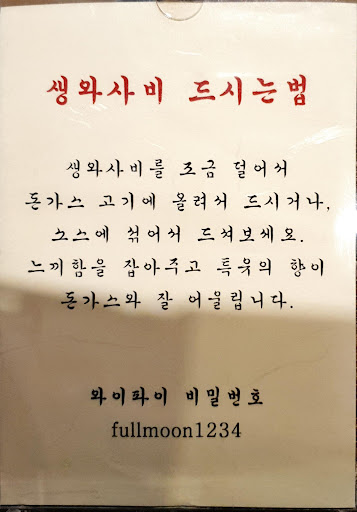 생와사비 드시는법
생와사비를 조금 덜어서
돈가스 고기에 올려서 드시거나,
소스에 섞어서 드셔보세요.
느끼함을 잡아주고 특유의 향이
돈가스와 잘 어울립니다.
와이파이 비밀번호
fullmoon1234